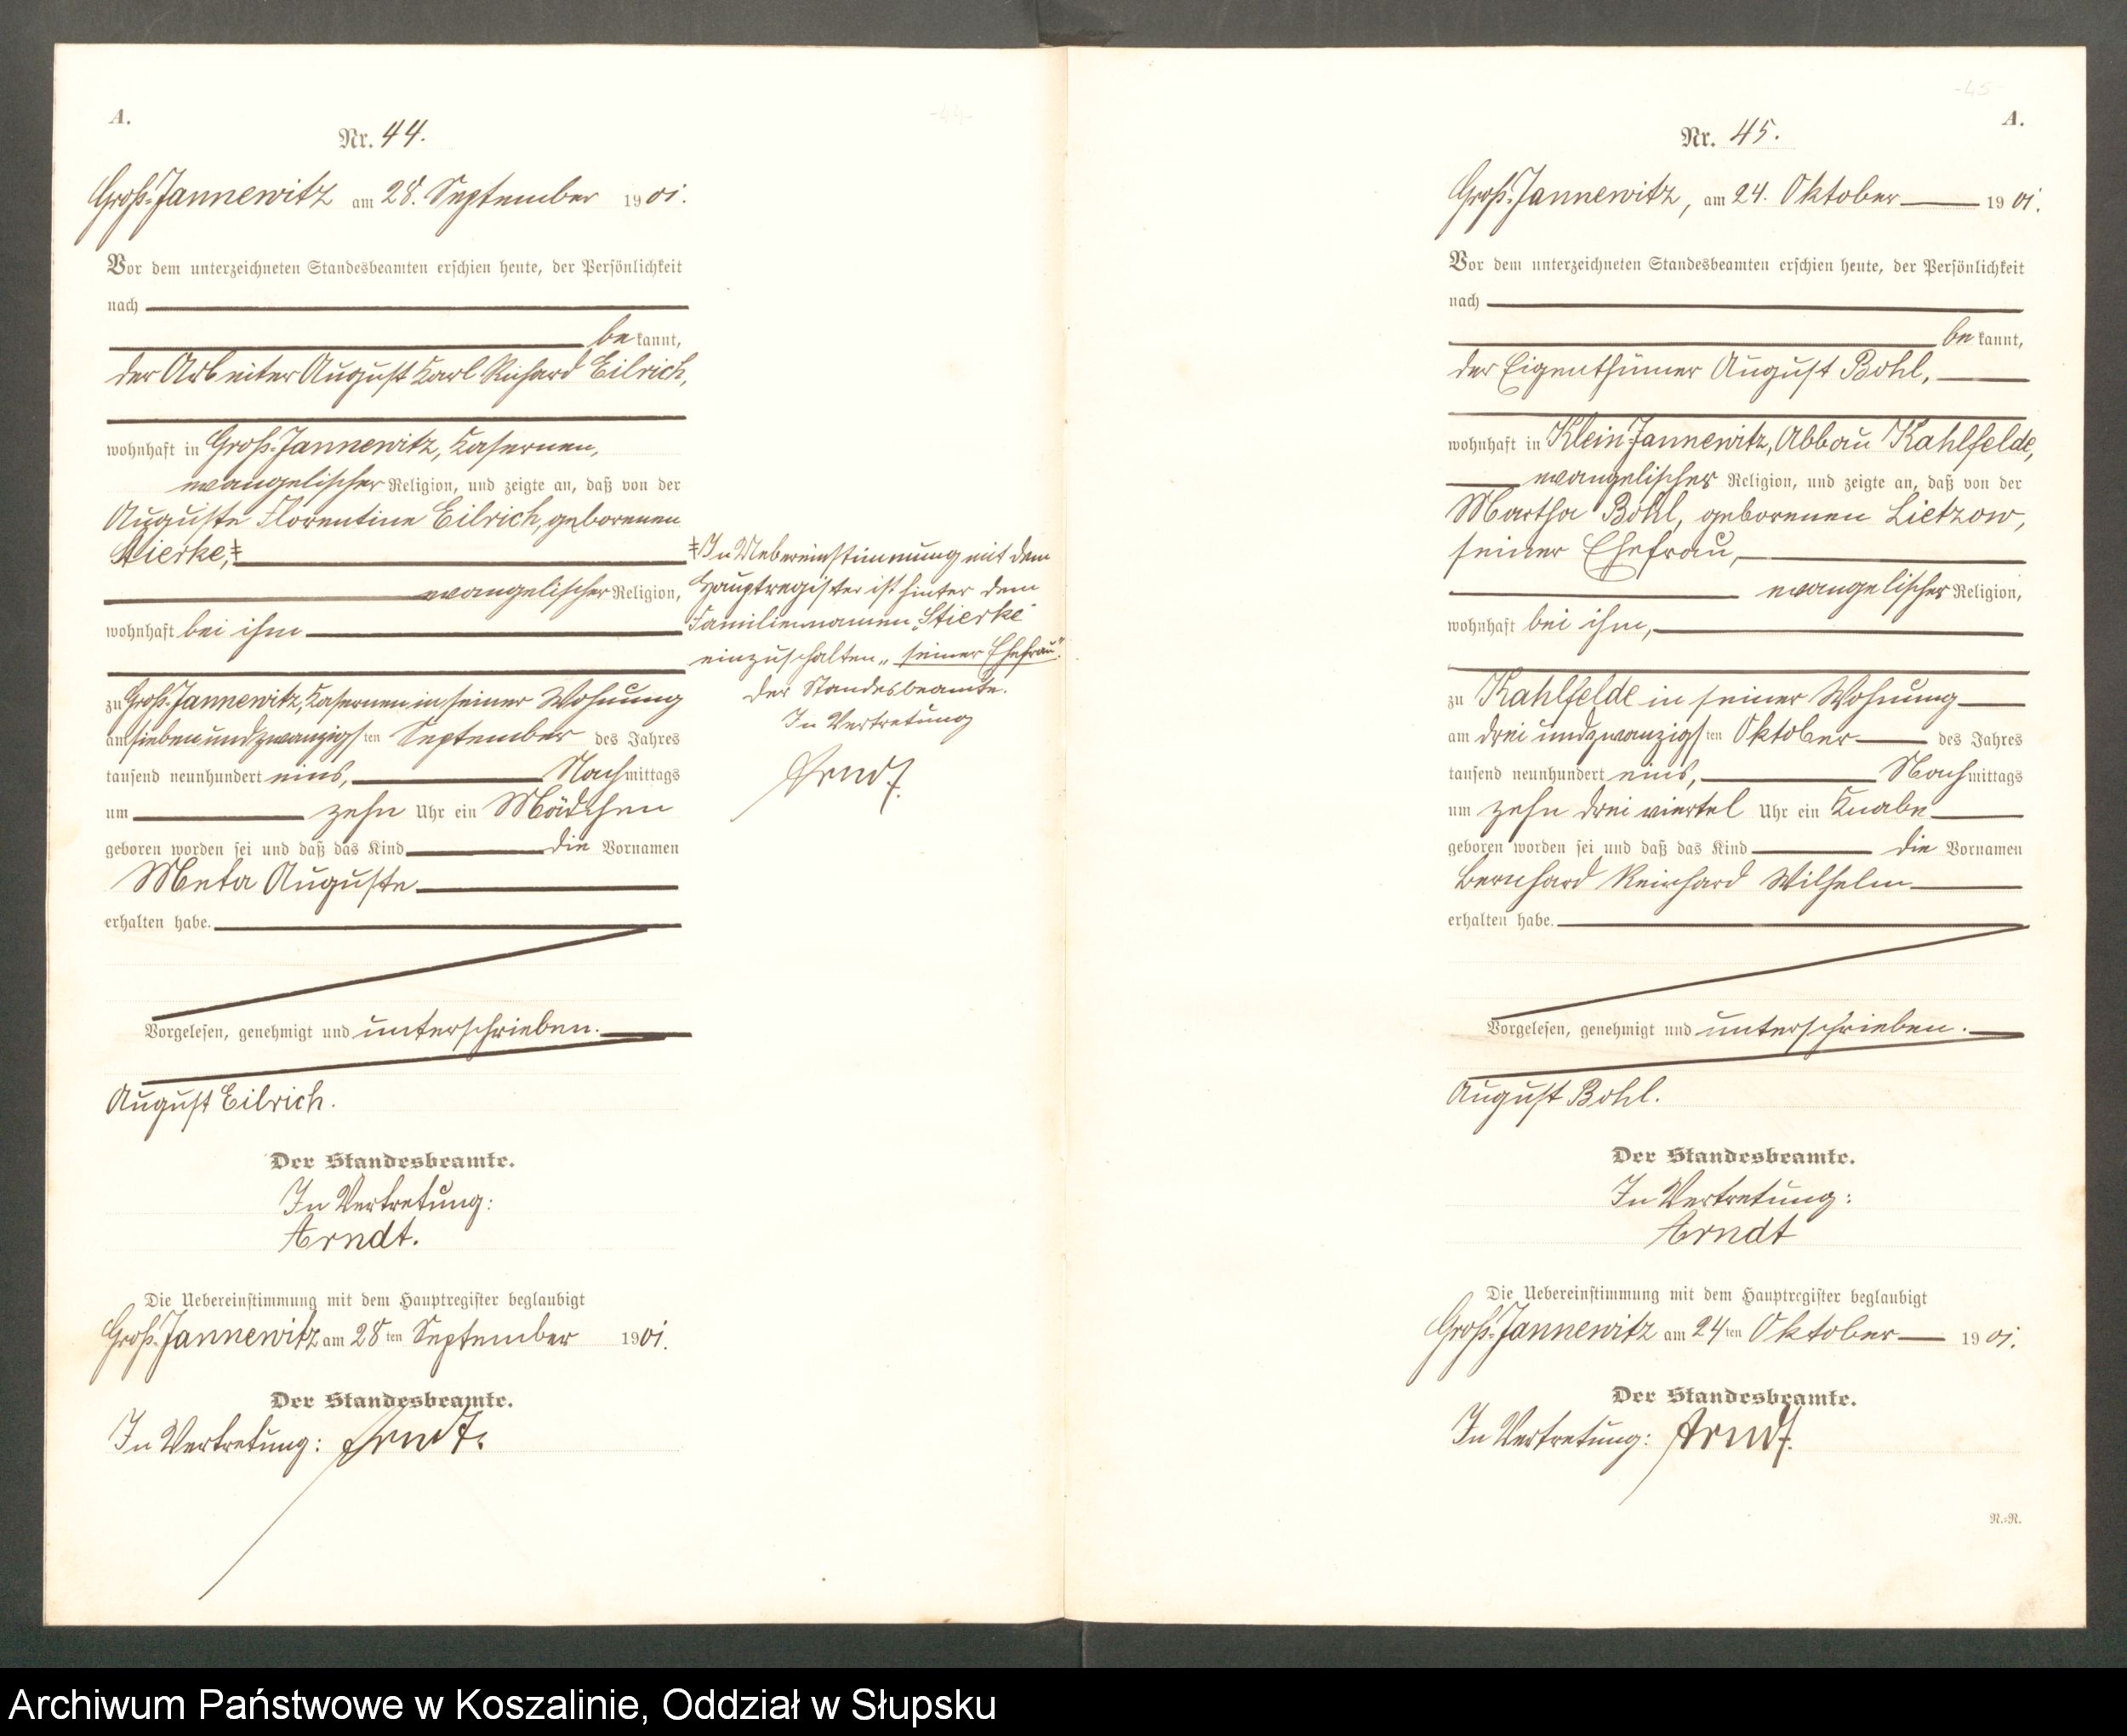 A.
Nr. 44.
-44-
Groß-Jannewitz am 28. September 1901.
Vor dem unterzeichneten Standesbeamten erschien heute, der Persönlichkeit
nach
bekannt,
der Arbeiter August Karl Richard Eilrich,
wohnhaft in Groß-Jannewitz, Kasernen,
evangelischer Religion, und zeigte an, daß von der
Auguste Florentine Eilrich, geborenen
Stierke, ǂ
evangelischer Religion,
wohnhaft bei ihm
zu Groß-Jannewitz, Kasernen in seiner Wohnung
am siebenundzwanzigsten September des Jahres
tausend neunhundert eins, Nachmittags
um zehn Uhr ein Mädchen
geboren worden sei und daß das Kind die Vornamen
Meta Auguste
erhalten habe.
Vorgelesen, genehmigt und unterschrieben.
August Eilrich.
Der Standesbeamte.
In Vertretung:
Arndt.
Die Uebereinstimmung mit dem Hauptregister beglaubigt
Groß-Jannewitz am 28ten September 1901.
Der Standesbeamte.
In Vertretung: Arndt.
ǂ In Uebereinstimmung mit dem
Hauptregister ist hinter dem
Familiennamen „Stierke"
einzuschalten „seiner Ehefrau".
Der Standesbeamte.
In Vertretung
Arndt.
-45-
A.
Nr. 45.
Groß-Jannewitz, am 24. Oktober 1901.
Vor dem unterzeichneten Standesbeamten erschien heute, der Persönlichkeit
nach
bekannt,
der Eigenthümer August Bohl,
wohnhaft in Klein-Jannewitz, Abbau Kahlfelde,
evangelischer Religion, und zeigte an, daß von der
Martha Bohl, geborenen Lietzow,
seiner Ehefrau,
evangelischer Religion,
wohnhaft bei ihm,
zu Kahlfelde in seiner Wohnung
am dreiundzwanzigsten Oktober des Jahres
tausend neunhundert eins, Nachmittags
um zehn drei viertel Uhr ein Knabe
geboren worden sei und daß das Kind die Vornamen
Bernhard Reinhard Wilhelm
erhalten habe.
Vorgelesen, genehmigt und unterschrieben.
August Bohl.
Der Standesbeamte.
In Vertretung:
Arndt
Die Uebereinstimmung mit dem Hauptregister beglaubigt
Groß-Jannewitz am 24ten Oktober 1901.
Der Standesbeamte.
In Vertretung: Arndt.
N.-N.
Archiwum Państwowe w Koszalinie, Oddział w Słupsku